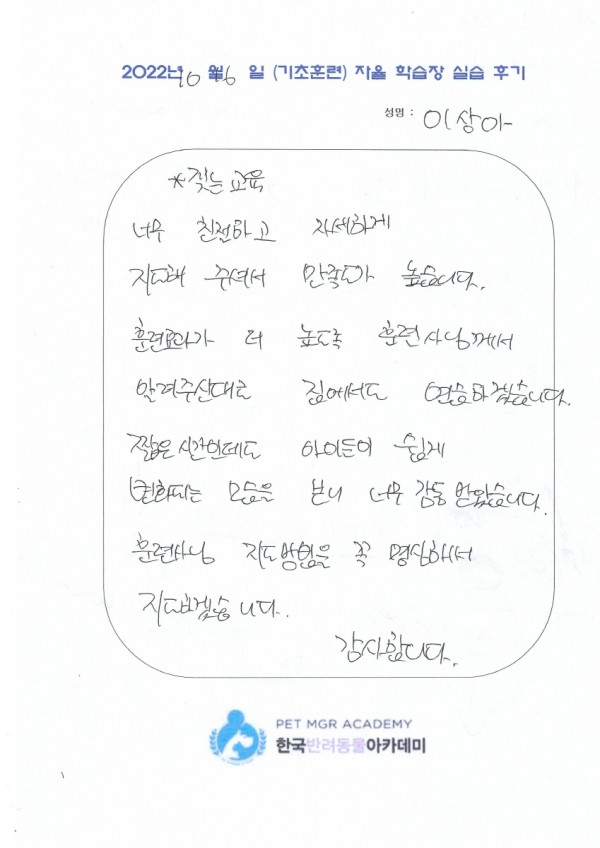 2022년 10 월 6 일 (기초훈련) 자율 학습장 실습 후기
성명 : 이상아
*짖는 교육
너무 친절하고 자세하게
지도해 주셔서 만족도가 높습니다.
훈련효과가 더 높도록 훈련사님께서
알려주신대로 집에서도 연습하겠습니다.
짧은 시간인데도 아이들이 쉽게
변화되는 모습을 보니 너무 감동 받았습니다.
훈련사님 지도방법을 꼭 명심해서
지도하겠습니다.
감사합니다.
PET MGR ACADEMY
한국반려동물아카데미